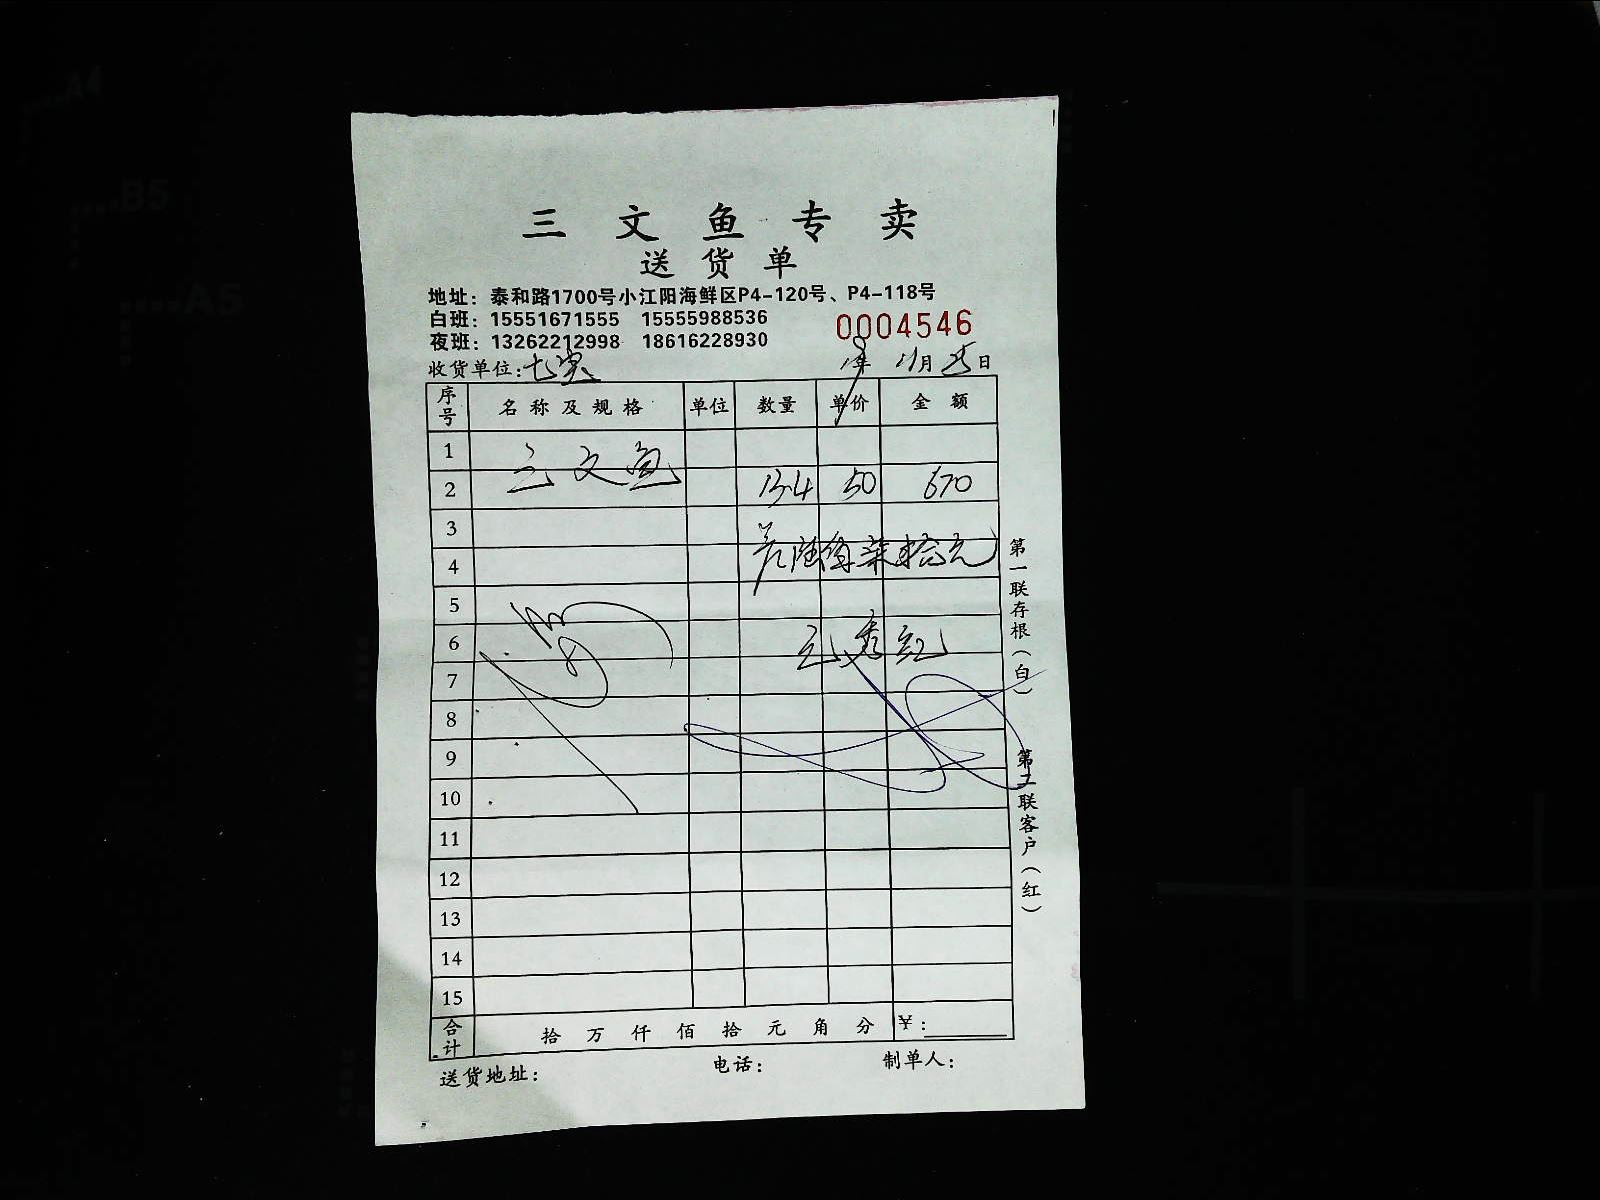 三文鱼专卖
送货单
地址：泰和路1700号小江阳海鲜区P4-120号、P4-118号
白班：15551671555 15555988536
0004546
夜班：13262212998 18616228930
收货单位： 年 11月 25日
序号 名称及规格 单位 数量 单价 金额
1
三文鱼
2 13.4 50 670
3
4 陆佰柒拾元
5
6
7
8
9
10
11
12
13
14
15
合计 拾 万 仟 佰 拾 元 角 分 ￥：
送货地址： 电话： 制单人：
第一联存根（白）
第二联客户（红）
A4
B5
A5